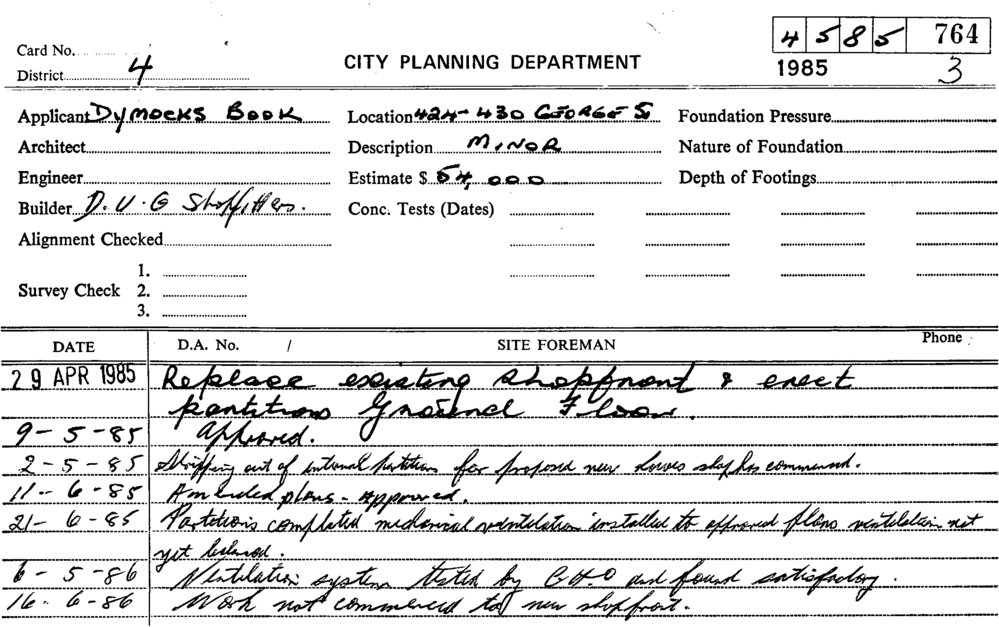 4 5 8 5 764
Card No.
CITY PLANNING DEPARTMENT
1985 3
District 4
Applicant DYMOCKS BOOK Location 424-430 GEORGE St Foundation Pressure
Architect Description MINOR Nature of Foundation
Engineer Estimate $ 54,000 Depth of Footings
Builder D.U.G Shopfitters. Conc. Tests (Dates)
Alignment Checked
1.
Survey Check 2.
3.
DATE D.A. No. / SITE FOREMAN Phone
29 APR 1985 Replace existing shopfront & erect
partitions Ground Floor.
9-5-85 Approved.
2-5-85 Stripping out of internal partitions for proposed new shop has commenced.
11-6-85 Amended plans - Approved.
21-6-85 Partitions completed mechanical ventilation installed to approved plans ventilation not
yet balanced.
6-5-86 Ventilation system tested by and found satisfactory.
16-6-86 Work not commenced to new shopfront.